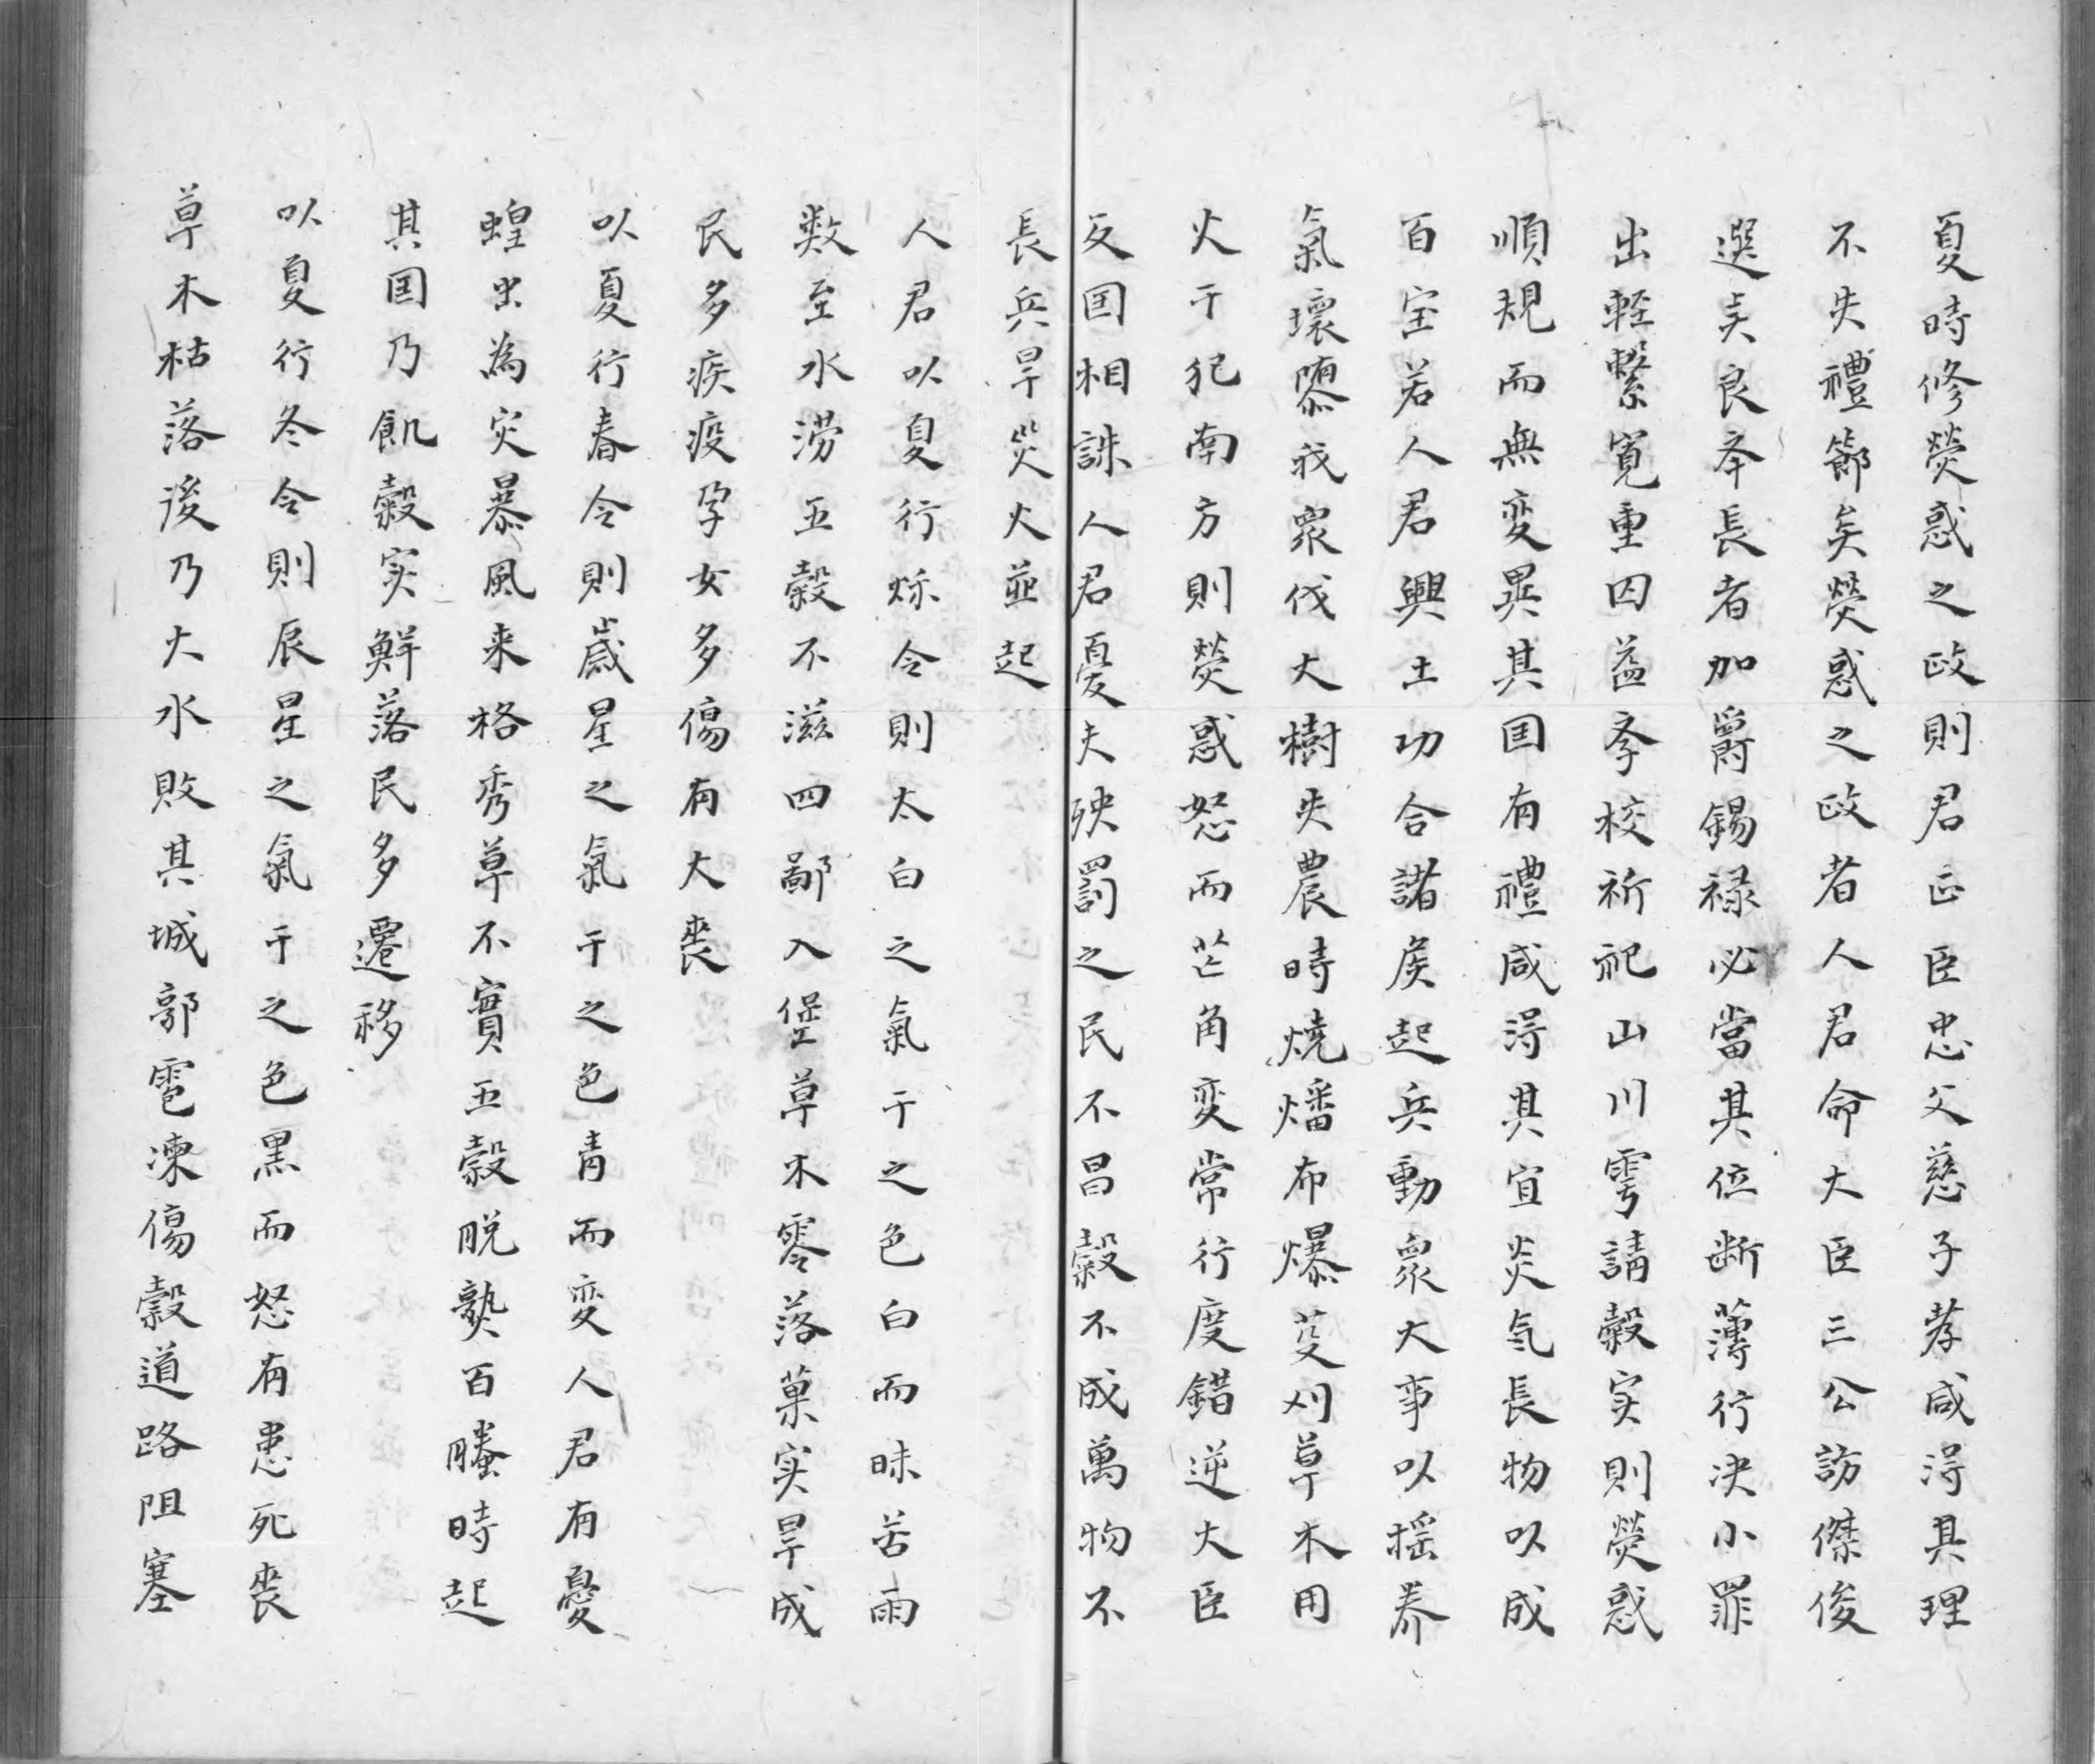 夏時修熒惑之政則君正臣忠父慈子孝咸淂其理
不失禮節矣熒惑之政者人君命大臣三公訪傑俊
選美良夲長者加爵錫禄必當其位断薄行决小罪
出輕繫寬重囚益斈校祈祀山川雩請穀实則熒惑
順規而無变異其囯有禮咸淂其宜炎気長物以成
百宝若人君興土功合諸侯起兵動衆大事以揺养
氣壞隳我衆伐大樹失農時燒燔布爆芟刈草木用
火干犯南方則熒惑怒而芒角変常行度錯逆大臣
反囯相誅人君憂夫殃罰之民不昌穀不成萬物不
長兵旱災火並起
人君以夏行秌令則太白之氣干之色白而昧苦雨
数至水涝五穀不滋四鄙入堡草木零落菓实旱成
民多疾疫孕女多傷有大丧
以夏行春令則歲星之氣干之色青而变人君有憂
蝗虫為灾暴風来格秀草不實五穀脱熟百螣時起
其囯乃飢穀实鮮落民多遷移
以夏行冬令則辰星之氣干之色黒而怒有患死丧
草木枯落後乃大水敗其城郭雹凍傷穀道路阻塞